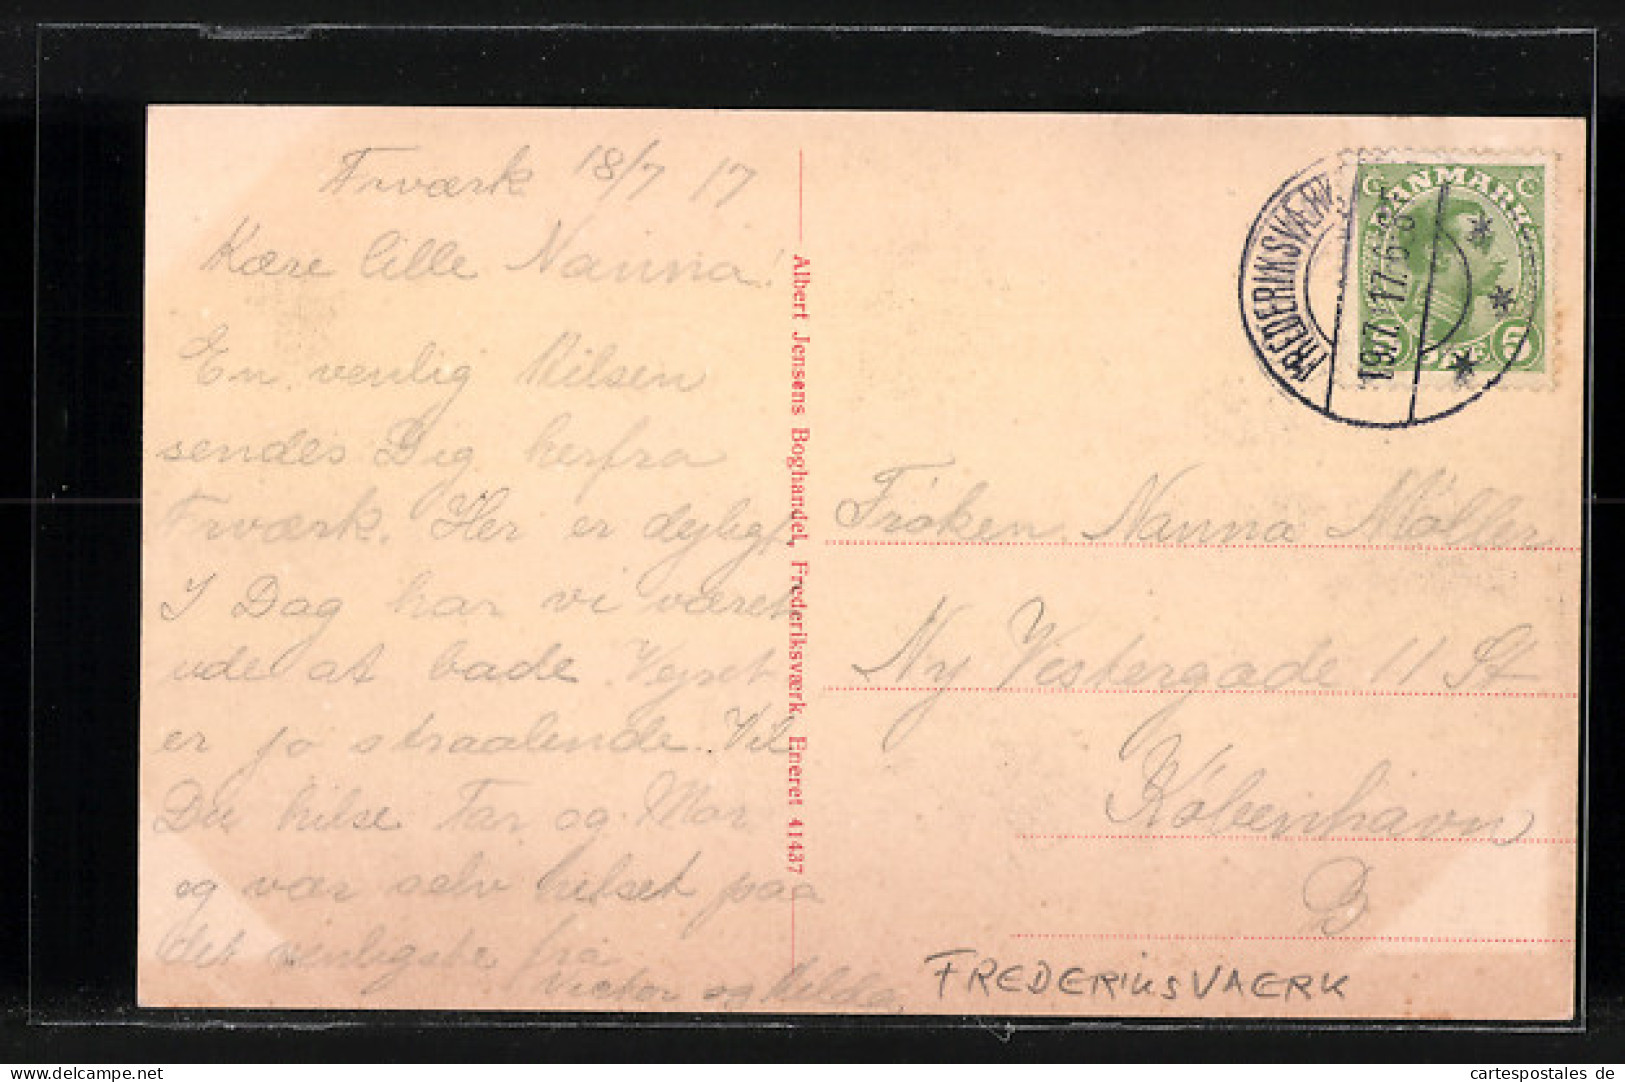 Frværk 18/7 17
Kære lille Nanna!
En venlig Hilsen
sendes Dig herfra
Frværk. Her er dejligt
I Dag har vi været
ude at bade. Vejret
er jo straalende. Vil
Du hilse Far og Mor
og vær selv hilset paa
det venligste fra
Victor og Helda
Albert Jensens Boghandel, Frederiksværk Eneret 41437
FREDERIKSVÆRK
19.7.17.6-8
DANMARK
5 ØRE 5
Frøken Nanna Møller
Ny Vestergade 11 St
København
B
FREDERIKSVAERK
cartespostales de